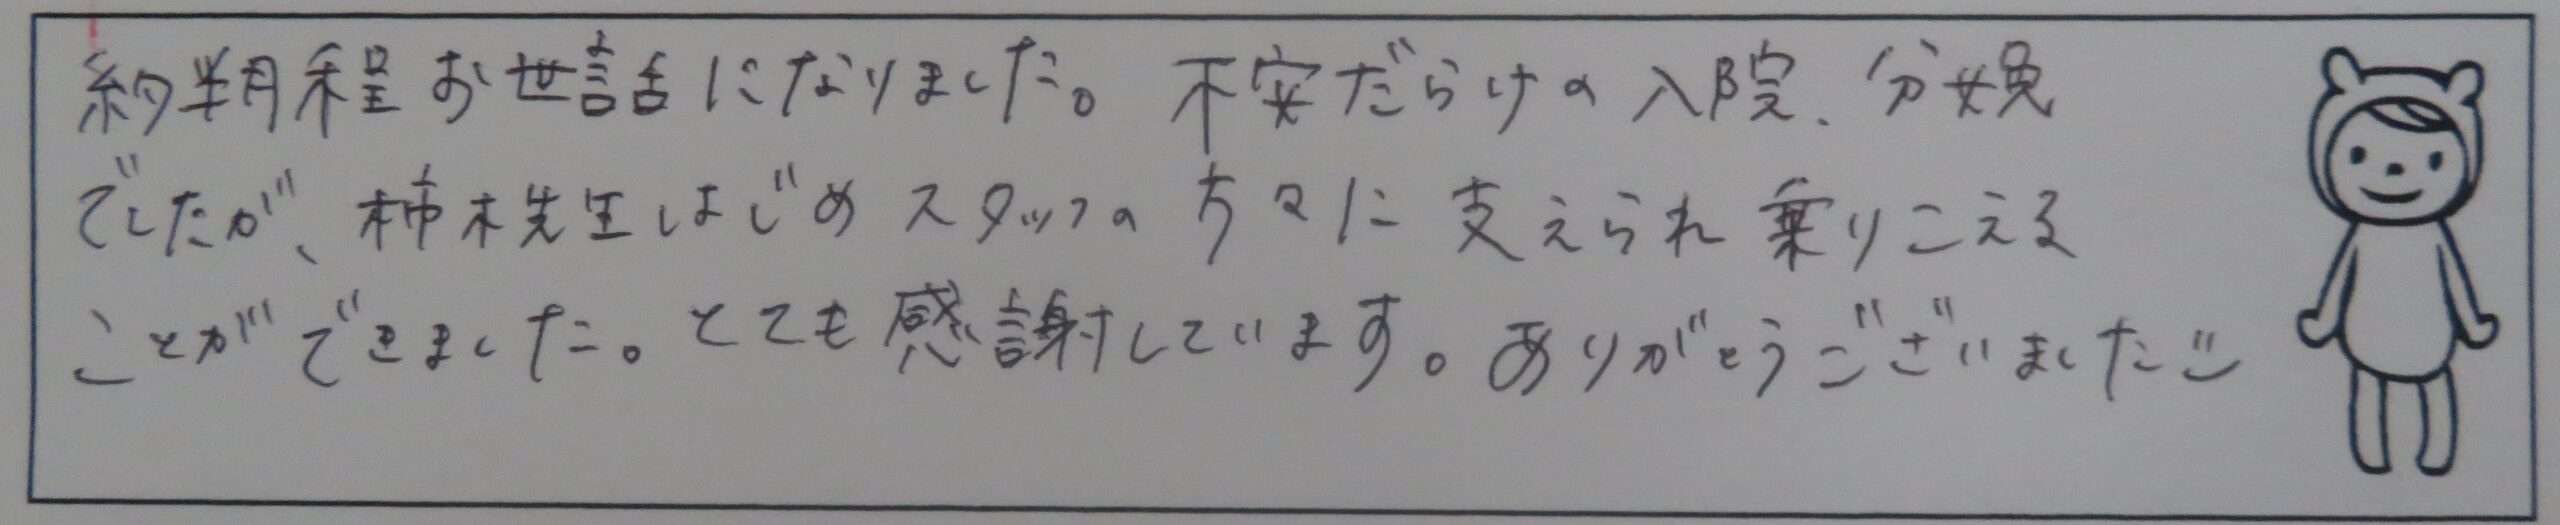 約半月程お世話になりました。不安だらけの入院、分娩
でしたが、柿木先生はじめスタッフの方々に支えられ乗りこえる
ことができました。とても感謝しています。ありがとうございました